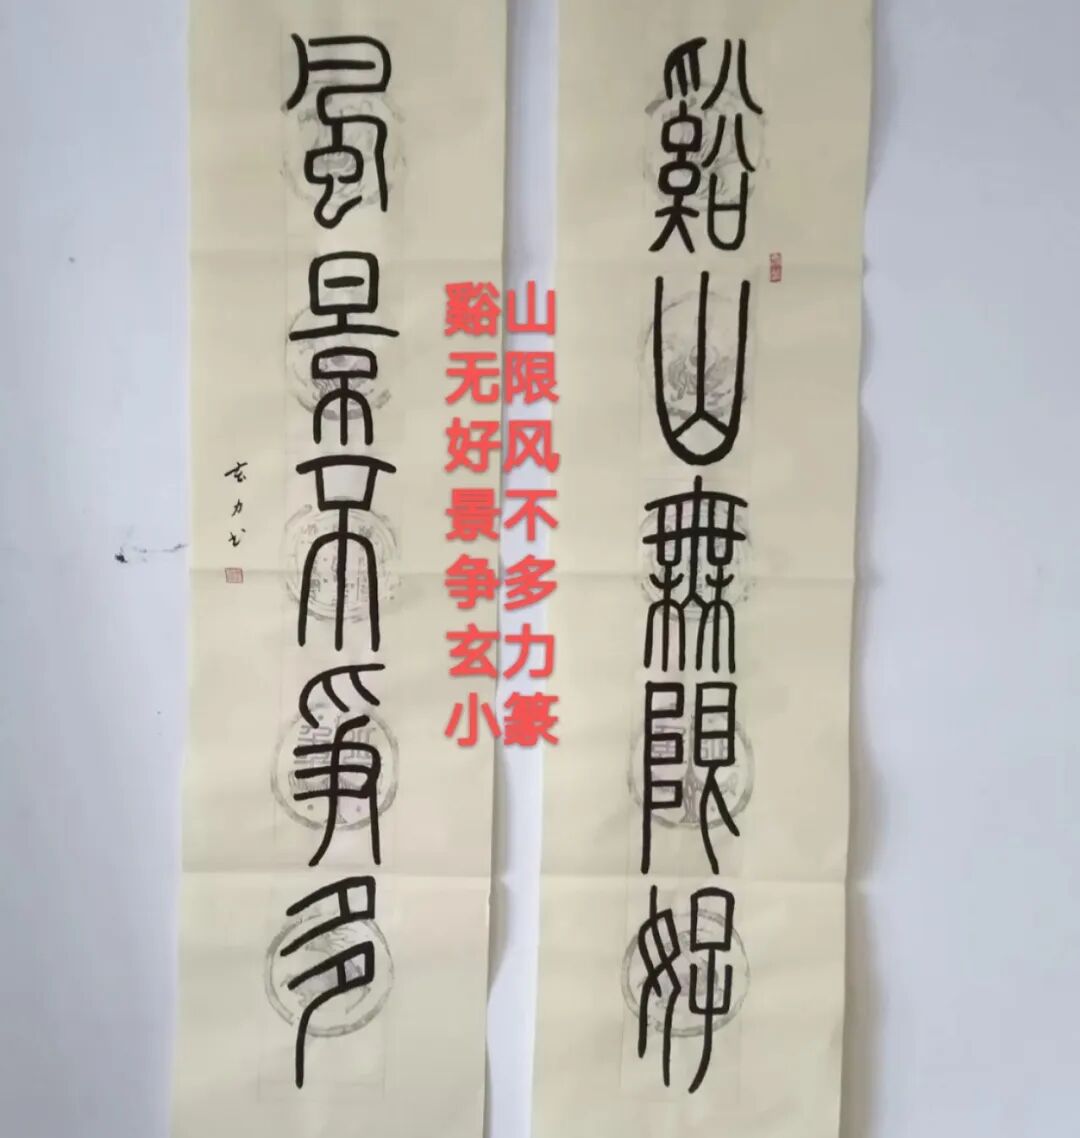 谿山無限好
風景不爭多
玄力书
谿山
无限
好风
景不
争多
玄力
小篆